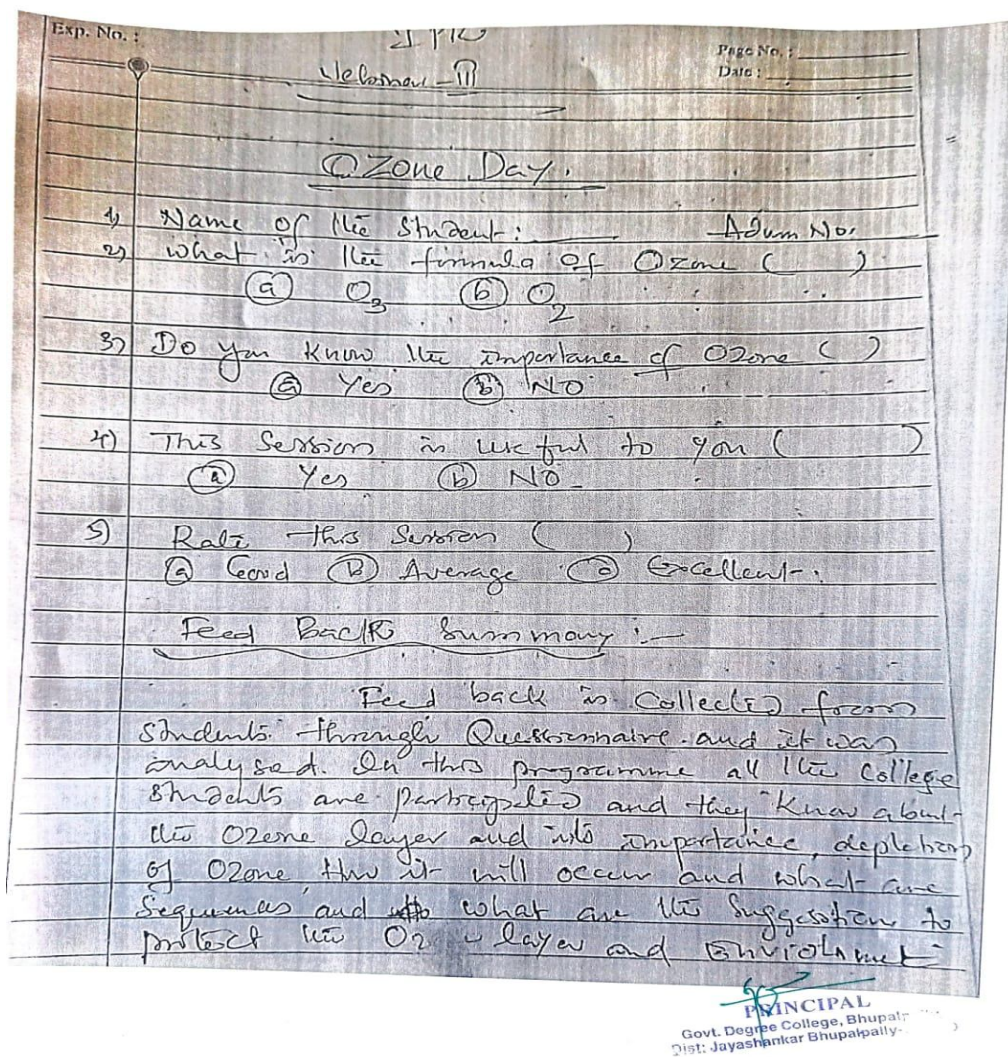 Exp. No. :
Page No. :
Date :
Ozone Day.
1) Name of the Student: Adum No.
2) what is the formula of Ozone ( )
(a) O3 (b) O2
3) Do you know the importance of Ozone ( )
(a) Yes (b) NO
4) This Session is useful to you ( )
(a) Yes (b) NO
5) Rate this Session ( )
(a) Good (b) Average (c) Excellent
Feed Back Summary :-
Feed back is Collected from
Students through Questionnaire and it was
analysed. In this programme all the College
Students are participated and they know about
the Ozone layer and its importance, depletion
of Ozone, it will occur and what are
and what are the Suggestion to
protect the layer and
PRINCIPAL
Govt. Degree College,
Dist: Jayashankar Bhupalpally-